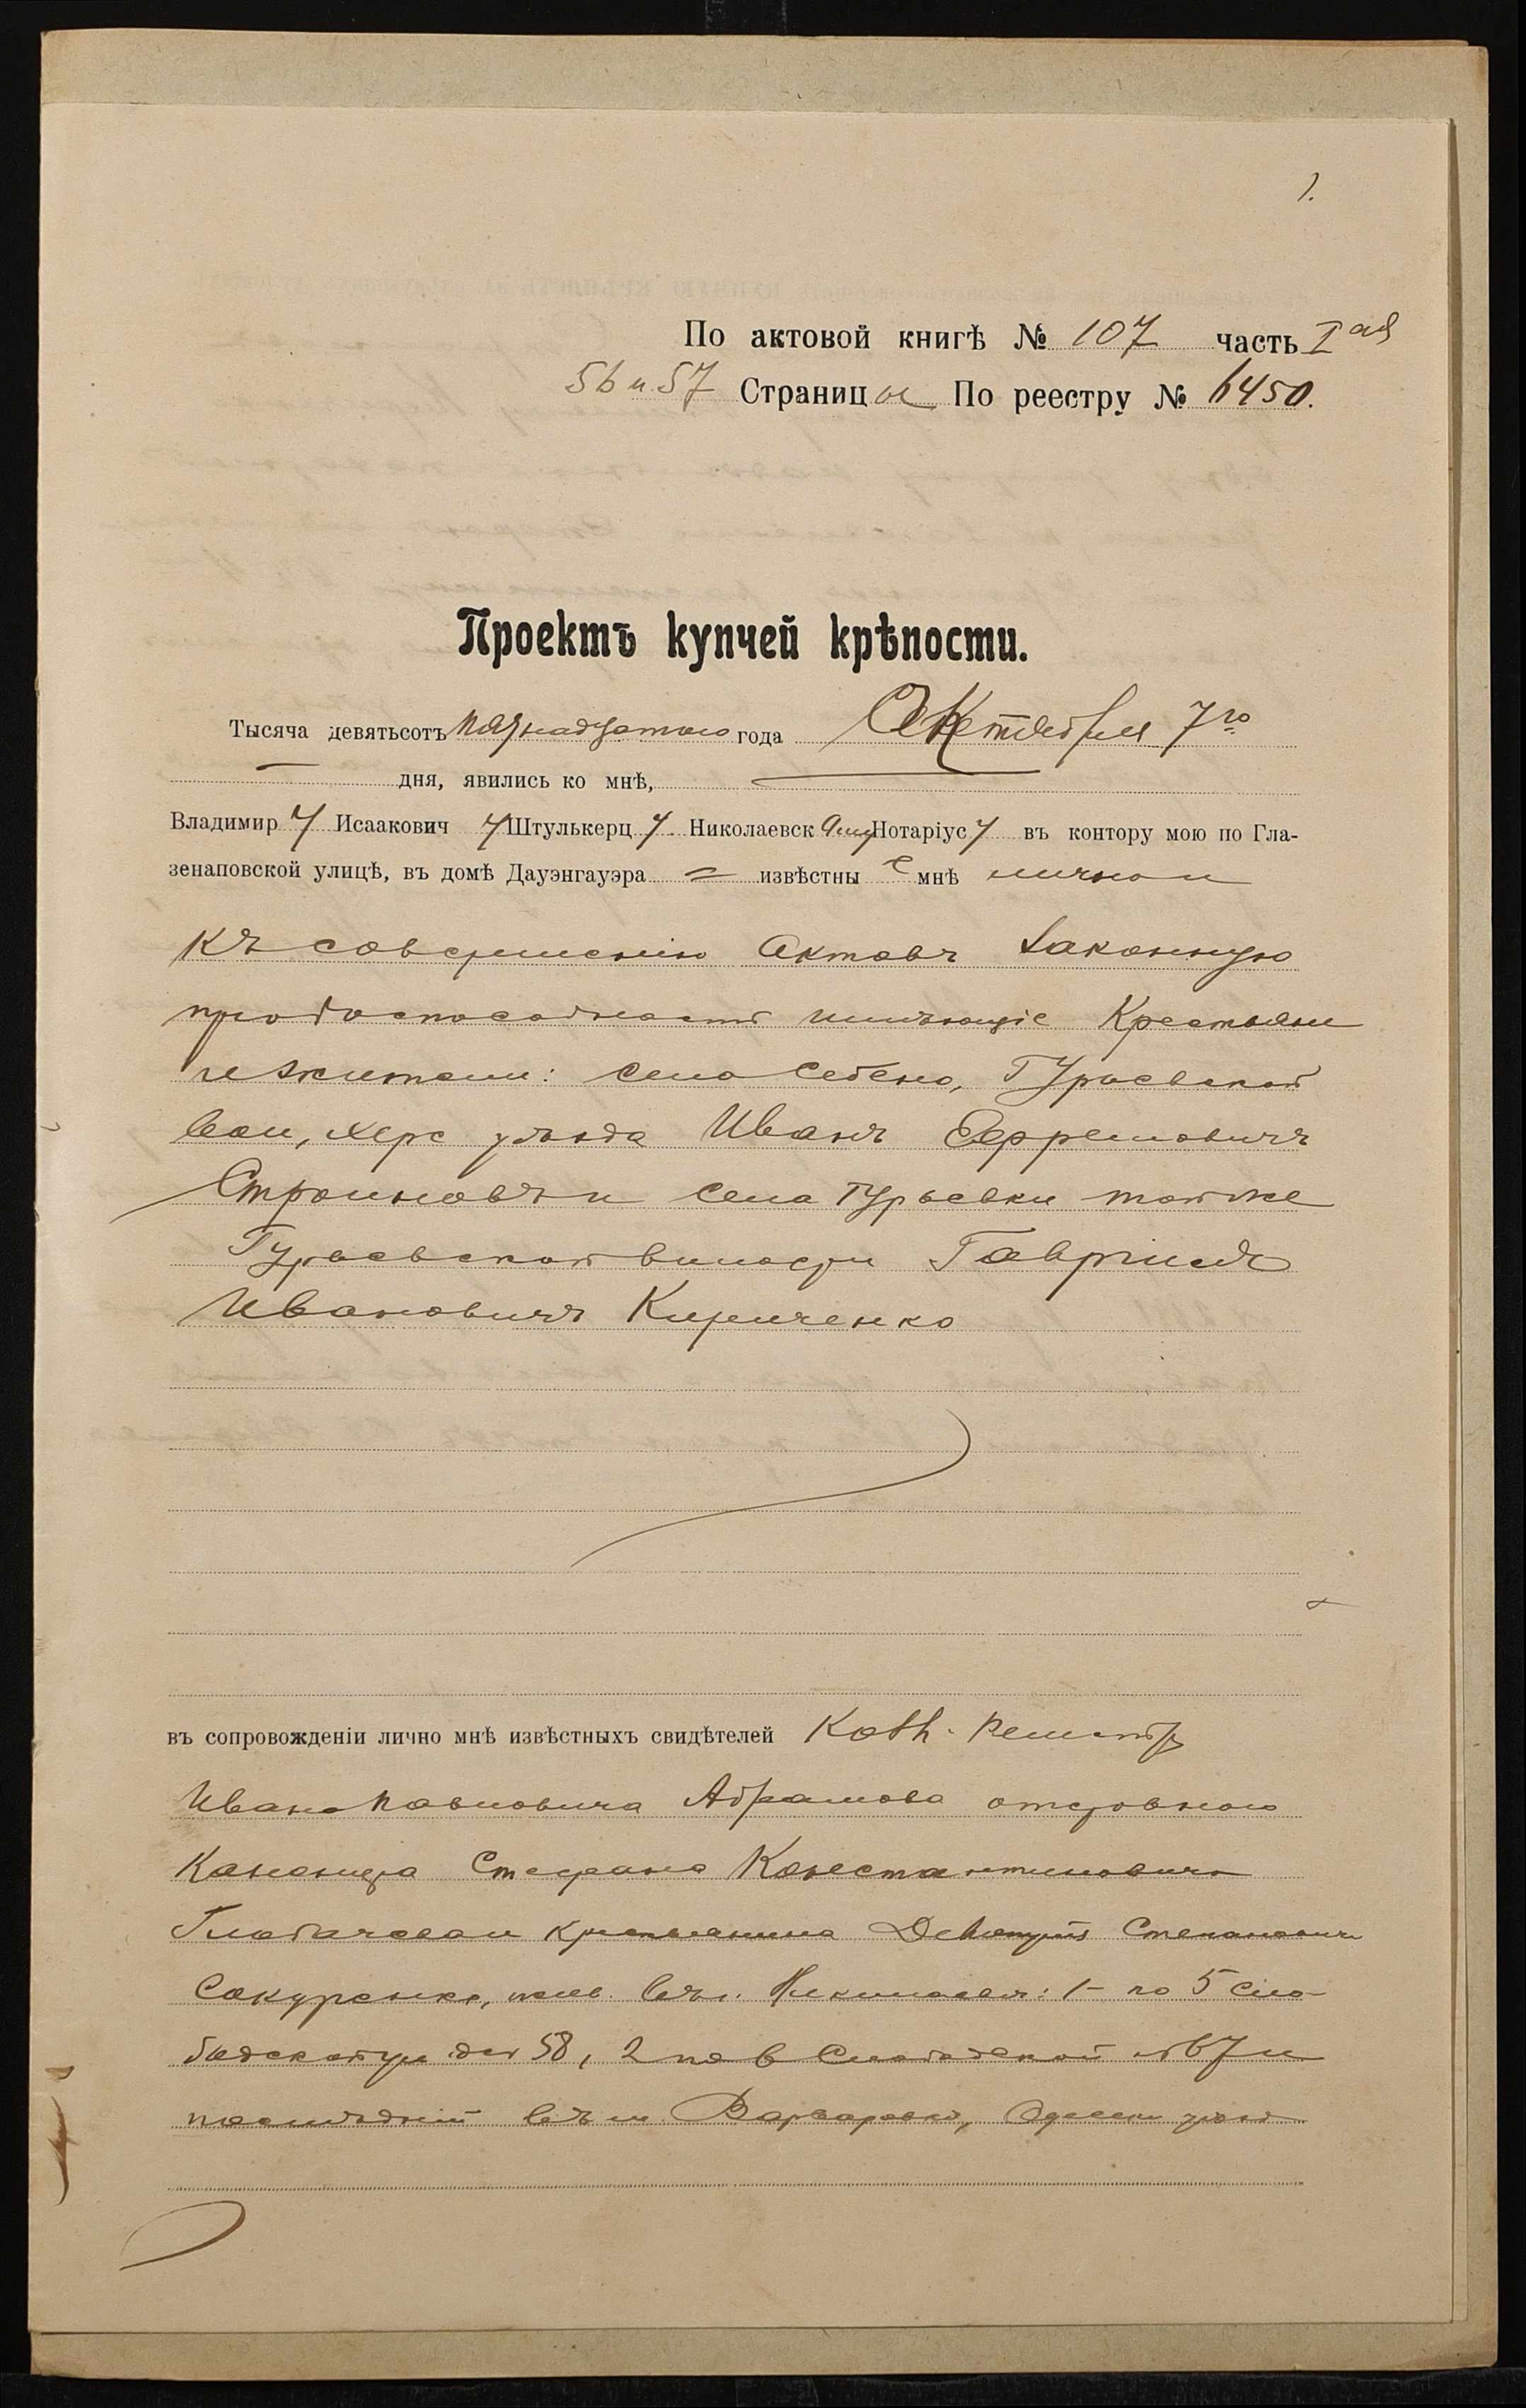 1.
По актовой книгѣ № 107 часть I ая
56 и 57 Страницы По реестру № 6450.
Проектъ купчей крѣпости.
Тысяча девятьсотъ пятнадцатого года Октября 7го
дня, явились ко мнѣ,
Владимиру Исааковичу Штулькерцу Николаевскому Нотаріусу въ контору мою по Гла-
зенаповской улицѣ, въ домѣ Дауэнгауэра извѣстные мнѣ лично и
къ совершенію актовъ законную
правоспособность имѣющіе Крестьяне
жители: села Себено, Гурьевской
вол, Херс уѣзда Иванъ Ефремовичъ
и села Гурьевки той же
Гурьевской волости Гавріилъ
Ивановичъ Кириченко
въ сопровожденіи лично мнѣ извѣстныхъ свидѣтелей Колл. Регистр
Ивана Павловича Абрамова отставного
Стефана Константиновича
крестьянина Степановича
Сакуренко, жив. въ г. Николаевѣ: 1- по 5 Сло-
бодской ул дом 58, 2 по 6 Слободской № 67 и
послѣдній въ м. Варваровкѣ, Одесск уѣзд